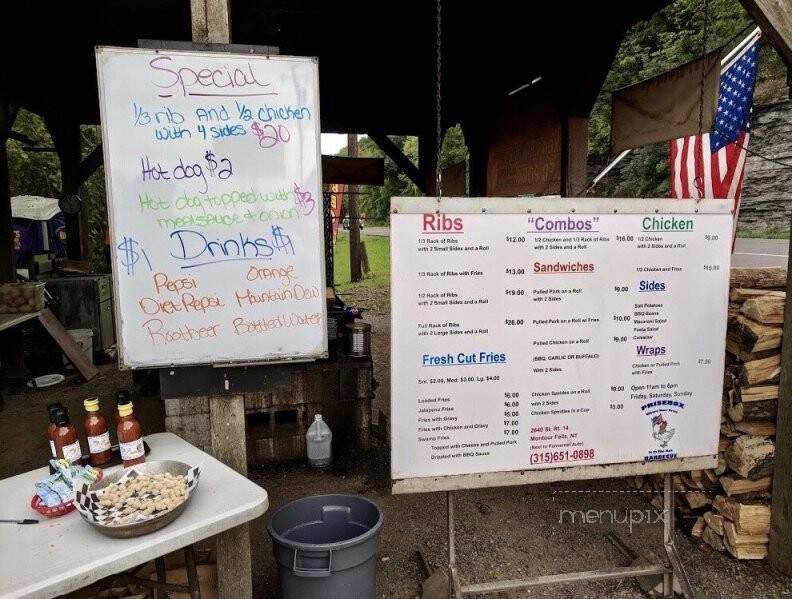 Special
1/3 rib AND 1/2 chicken
with 4 sides $20
Hot dog $2
Hot dog topped with $3
meat sauce & onion
$1 Drinks $1
Pepsi Orange
Diet Pepsi Mountain Dew
Rootbeer Bottled Water
Ribs
1/3 Rack of Ribs $12.00
with 2 Small Sides and a Roll
1/3 Rack of Ribs with Fries $13.00
1/2 Rack of Ribs $18.00
with 2 Small Sides and a Roll
Full Rack of Ribs $26.00
with 2 Large Sides and a Roll
Fresh Cut Fries
Sm. $2.00, Med. $3.00, Lg. $4.00
Loaded Fries $6.00
Jalapeno Fries $6.00
Fries with Gravy $5.00
Fries with Chicken and Gravy $7.00
Swamp Fries $7.00
Topped with Cheese and Pulled Pork
Drizzled with BBQ Sauce
"Combos"
1/2 Chicken and 1/3 Rack of Ribs $16.00
with 2 Sides and a Roll
Sandwiches
Pulled Pork on a Roll $9.00
with 2 Sides
Pulled Pork on a Roll w/ Fries $10.00
Pulled Chicken on a Roll $9.00
(BBQ, GARLIC OR BUFFALO)
With 2 Sides
Chicken Speidies on a Roll $9.00
with 2 Sides
Chicken Speidies in a Cup $5.00
2640 St. Rt. 14
Montour Falls, NY
(315)651-0898
Chicken
1/2 Chicken
with 2 Sides and a Roll
1/2 Chicken and Fries $10.00
Sides
Salt Potatoes
BBQ Beans
Macaroni Salad
Pasta Salad
Coleslaw
Wraps
Chicken or Pulled Pork
with Fries
Open 11am to 6pm
Friday, Saturday, Sunday
PRISEBOX
BARBECUE
menupix